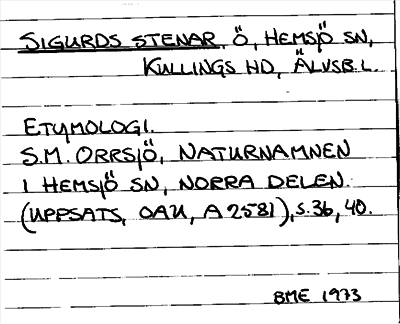 SIGURDS STENAR, Ö, HEMSJÖ SN,
KULLINGS HD, ÄLVSB.L.
ETYMOLOGI.
S.M. ORRSJÖ, NATURNAMNEN
I HEMSJÖ SN, NORRA DELEN.
(UPPSATS, OAU, A 2581), S. 36, 40.
BME 1973